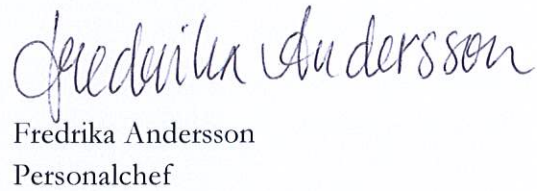 Fredrika Andersson
Fredrika Andersson
Personalchef